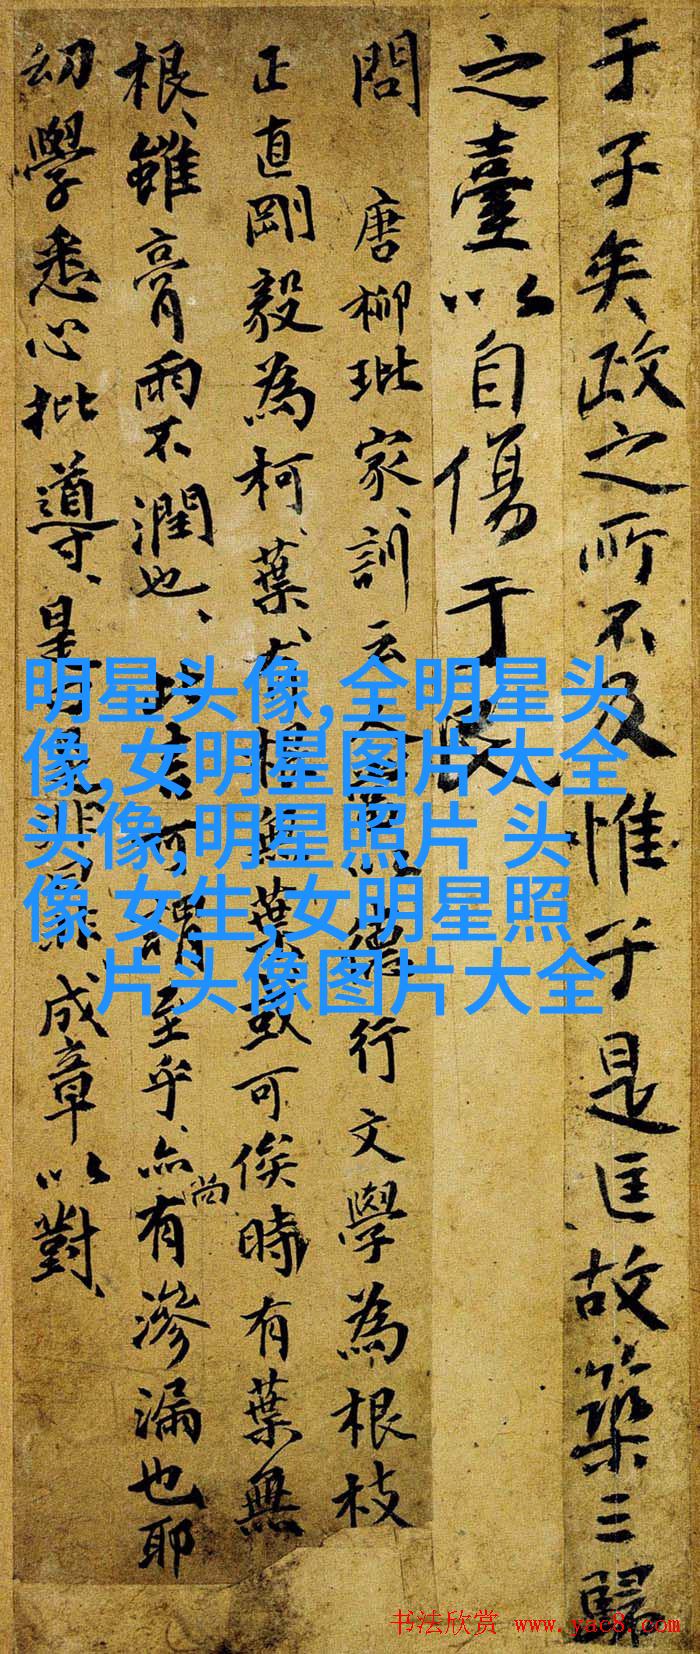 于子矣政之所不及惟于是匡故築三歸
之臺以自傷于民
問 唐柳玭家訓云行文學為根枝
正直剛毅為柯葉有根無葉或可俟時有葉無
根雖膏雨不潤也至乎亦尚有滲漏也耶
幼學悉心批導是非成章以對
明星头像,全明星头
像,女明星图片大全
头像,明星照片 头
像 女生,女明星照
片头像图片大全
书法欣赏 www.yac8.com